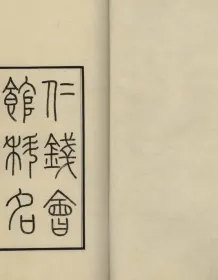 仁錢會
館科名